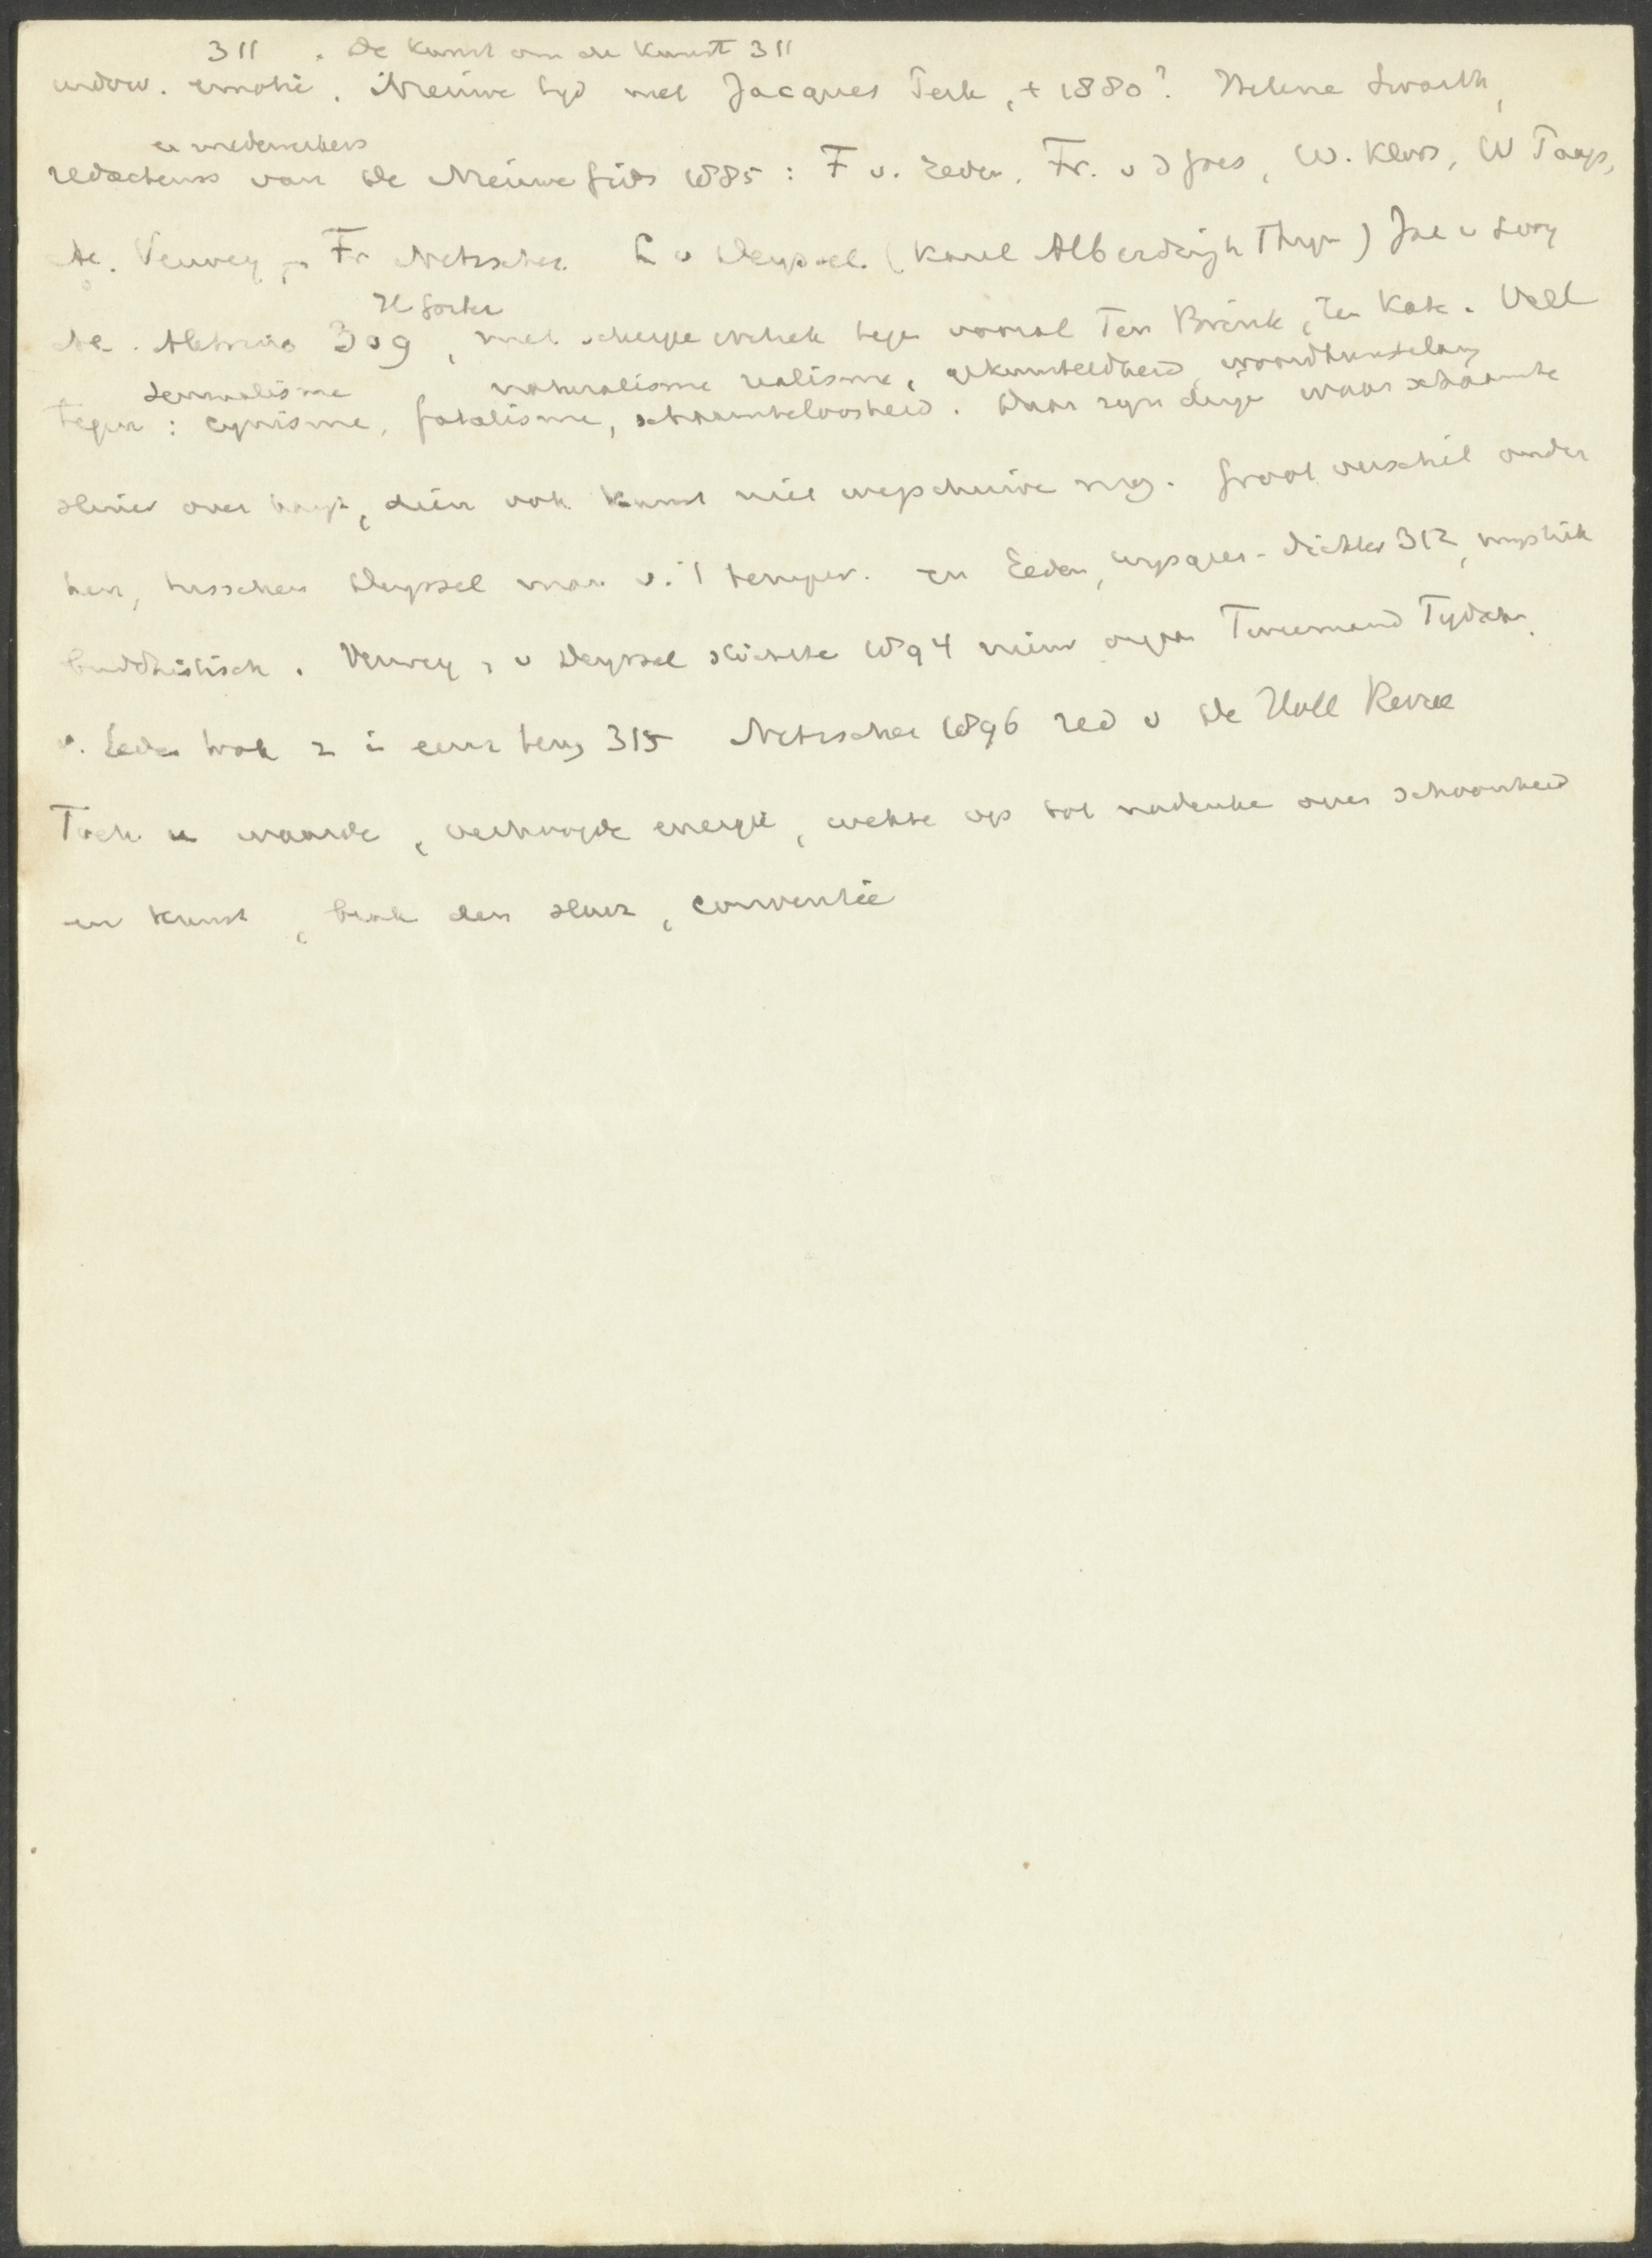 311 . De Kunst om de Kunst 311
indow. emotie. Nieuwe tijd met Jacques Perk, + 1880? Helene Swarth,
en medewerkers
redacteurs van De Nieuwe Gids 1885: F v. Eeden, Fr. v d Goes, W. Kloos, W Paap,
A. Verwey, Fr Netscher L v Deyssel (Karel Alberdingk Thym) Jac v Looy
H Gorter
A. Aletrino 309, met scherpe critiek tegen vooral Ten Brink, Ten Kate. Veel
sensualisme naturalisme realisme, gekunsteldheid, woordkunstelary
tegen: cynisme, fatalisme, schaamteloosheid. Daar zijn dingen waar schaamte
sluier over hangt, dien ook kunst niet wegschuiven mag. Groot verschil onder
hen, tusschen Deyssel man v. 't temper. en Eeden, wysgeer-dichter 312, mystiek
buddhistisch. Verwey en v Deyssel stichtte 1894 nieuw orgaan Tweemaand Tydschr.
v. Eeden trok z in eenz terug 315 Netscher 1896 red v De Holl Revue
Toch waarde, verhoogde energie, wekte op tot nadenken over schoonheid
en kunst, brak den sleur, conventie